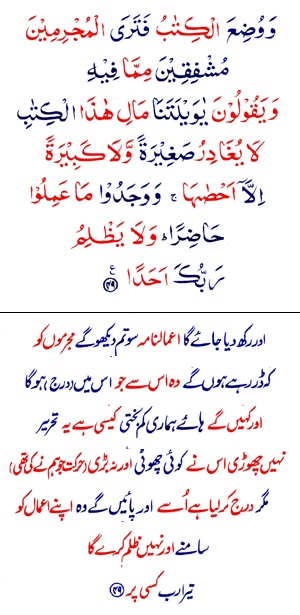 وَوُضِعَ الْكِتٰبُ فَتَرَى الْمُجْرِمِيْنَ
مُشْفِقِيْنَ مِمَّا فِيْهِ
وَيَقُوْلُوْنَ يٰوَيْلَتَنَا مَالِ هٰذَا الْكِتٰبِ
لَا يُغَادِرُ صَغِيْرَةً وَّلَا كَبِيْرَةً
اِلَّآ اَحْصٰىهَا ۚ وَوَجَدُوْا مَا عَمِلُوْا
حَاضِرًا ؕ وَلَا يَظْلِمُ
رَبُّكَ اَحَدًا ﴿۴۹﴾ ع
اور رکھ دیا جائے گا اعمالنامہ سو تم دیکھو گے مجرموں کو
کہ ڈر رہے ہوں گے وہ اس سے جو اس میں (درج) ہوگا
اور کہیں گے ہائے ہماری کم بختی کیسی ہے یہ تحریر
نہیں چھوڑی اس نے کوئی چھوٹی اور نہ بڑی (حرکت جو ہم نے کی تھی)
مگر درج کر لیا ہے اُسے اور پائیں گے وہ اپنے اعمال کو
سامنے اور نہیں ظلم کرے گا
تیرا رب کسی پر ﴿۴۹﴾